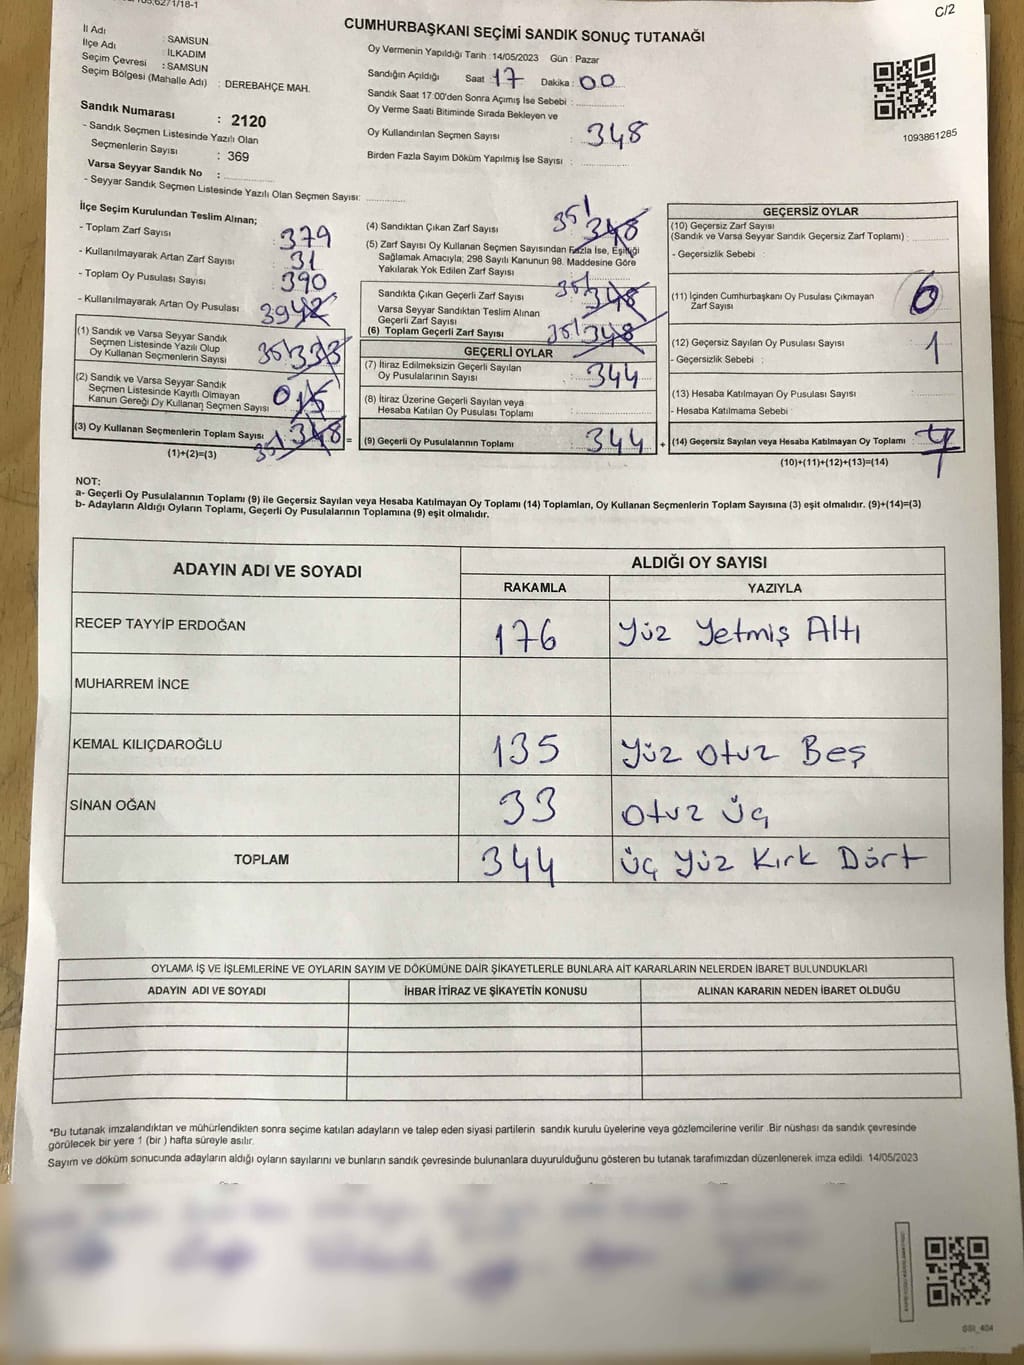 C/2
CUMHURBAŞKANI SEÇİMİ SANDIK SONUÇ TUTANAĞI
İl Adı : SAMSUN
İlçe Adı : İLKADIM
Seçim Çevresi : SAMSUN
Seçim Bölgesi (Mahalle Adı) : DEREBAHÇE MAH.
Sandık Numarası : 2120
- Sandık Seçmen Listesinde Yazılı Olan
Seçmenlerin Sayısı : 369
Varsa Seyyar Sandık No :
- Seyyar Sandık Seçmen Listesinde Yazılı Olan Seçmen Sayısı:
Oy Vermenin Yapıldığı Tarih : 14/05/2023 Gün : Pazar
Sandığın Açıldığı Saat : 17 Dakika : 00
Sandık Saat 17:00'den Sonra Açımış İse Sebebi :
Oy Verme Saati Bitiminde Sırada Bekleyen ve
Oy Kullandırılan Seçmen Sayısı : 348
Birden Fazla Sayım Döküm Yapılmış İse Sayısı :
1093861285
İlçe Seçim Kurulundan Teslim Alınan;
- Toplam Zarf Sayısı : 379
- Kullanılmayarak Artan Zarf Sayısı : 31
- Toplam Oy Pusulası Sayısı : 390
- Kullanılmayarak Artan Oy Pusulası
(1) Sandık ve Varsa Seyyar Sandık
Seçmen Listesinde Yazılı Olup
Oy Kullanan Seçmenlerin Sayısı : 351 333
(2) Sandık ve Varsa Seyyar Sandık
Seçmen Listesinde Kayıtlı Olmayan
Kanun Gereği Oy Kullanan Seçmen Sayısı : 0 15
(3) Oy Kullanan Seçmenlerin Toplam Sayısı : 351 348 =
(1)+(2)=(3)
(4) Sandıktan Çıkan Zarf Sayısı : 351 348
(5) Zarf Sayısı Oy Kullanan Seçmen Sayısından Fazla İse, Eşitliği
Sağlamak Amacıyla; 298 Sayılı Kanunun 98. Maddesine Göre
Yakılarak Yok Edilen Zarf Sayısı
Sandıkta Çıkan Geçerli Zarf Sayısı : 351 348
Varsa Seyyar Sandıktan Teslim Alınan
Geçerli Zarf Sayısı
(6) Toplam Geçerli Zarf Sayısı : 351 348
GEÇERLİ OYLAR
(7) İtiraz Edilmeksizin Geçerli Sayılan
Oy Pusulalarının Sayısı : 344
(8) İtiraz Üzerine Geçerli Sayılan veya
Hesaba Katılan Oy Pusulası Toplamı :
(9) Geçerli Oy Pusulalarının Toplamı : 344 +
GEÇERSİZ OYLAR
(10) Geçersiz Zarf Sayısı
(Sandık ve Varsa Seyyar Sandık Geçersiz Zarf Toplamı) :
- Geçersizlik Sebebi :
(11) İçinden Cumhurbaşkanı Oy Pusulası Çıkmayan
Zarf Sayısı : 6
(12) Geçersiz Sayılan Oy Pusulası Sayısı : 1
- Geçersizlik Sebebi :
(13) Hesaba Katılmayan Oy Pusulası Sayısı :
- Hesaba Katılmama Sebebi :
(14) Geçersiz Sayılan veya Hesaba Katılmayan Oy Toplamı : 7
(10)+(11)+(12)+(13)=(14)
NOT:
a- Geçerli Oy Pusulalarının Toplamı (9) ile Geçersiz Sayılan veya Hesaba Katılmayan Oy Toplamı (14) Toplamları, Oy Kullanan Seçmenlerin Toplam Sayısına (3) eşit olmalıdır. (9)+(14)=(3)
b- Adayların Aldığı Oyların Toplamı, Geçerli Oy Pusulalarının Toplamına (9) eşit olmalıdır.
ADAYIN ADI VE SOYADI ALDIĞI OY SAYISI
RAKAMLA YAZIYLA
RECEP TAYYİP ERDOĞAN 176 Yüz Yetmiş Altı
MUHARREM İNCE
KEMAL KILIÇDAROĞLU 135 Yüz Otuz Beş
SİNAN OĞAN 33 Otuz Üç
TOPLAM 344 Üç Yüz Kırk Dört
OYLAMA İŞ VE İŞLEMLERİNE VE OYLARIN SAYIM VE DÖKÜMÜNE DAİR ŞİKAYETLERLE BUNLARA AİT KARARLARIN NELERDEN İBARET BULUNDUKLARI
ADAYIN ADI VE SOYADI İHBAR İTİRAZ VE ŞİKAYETİN KONUSU ALINAN KARARIN NEDEN İBARET OLDUĞU
*Bu tutanak imzalandıktan ve mühürlendikten sonra seçime katılan adayların ve talep eden siyasi partilerin sandık kurulu üyelerine veya gözlemcilerine verilir .Bir nüshası da sandık çevresinde
görülecek bir yere 1 (bir ) hafta süreyle asılır.
Sayım ve döküm sonucunda adayların aldığı oyların sayılarını ve bunların sandık çevresinde bulunanlara duyurulduğunu gösteren bu tutanak tarafımızdan düzenlenerek imza edildi. 14/05/2023